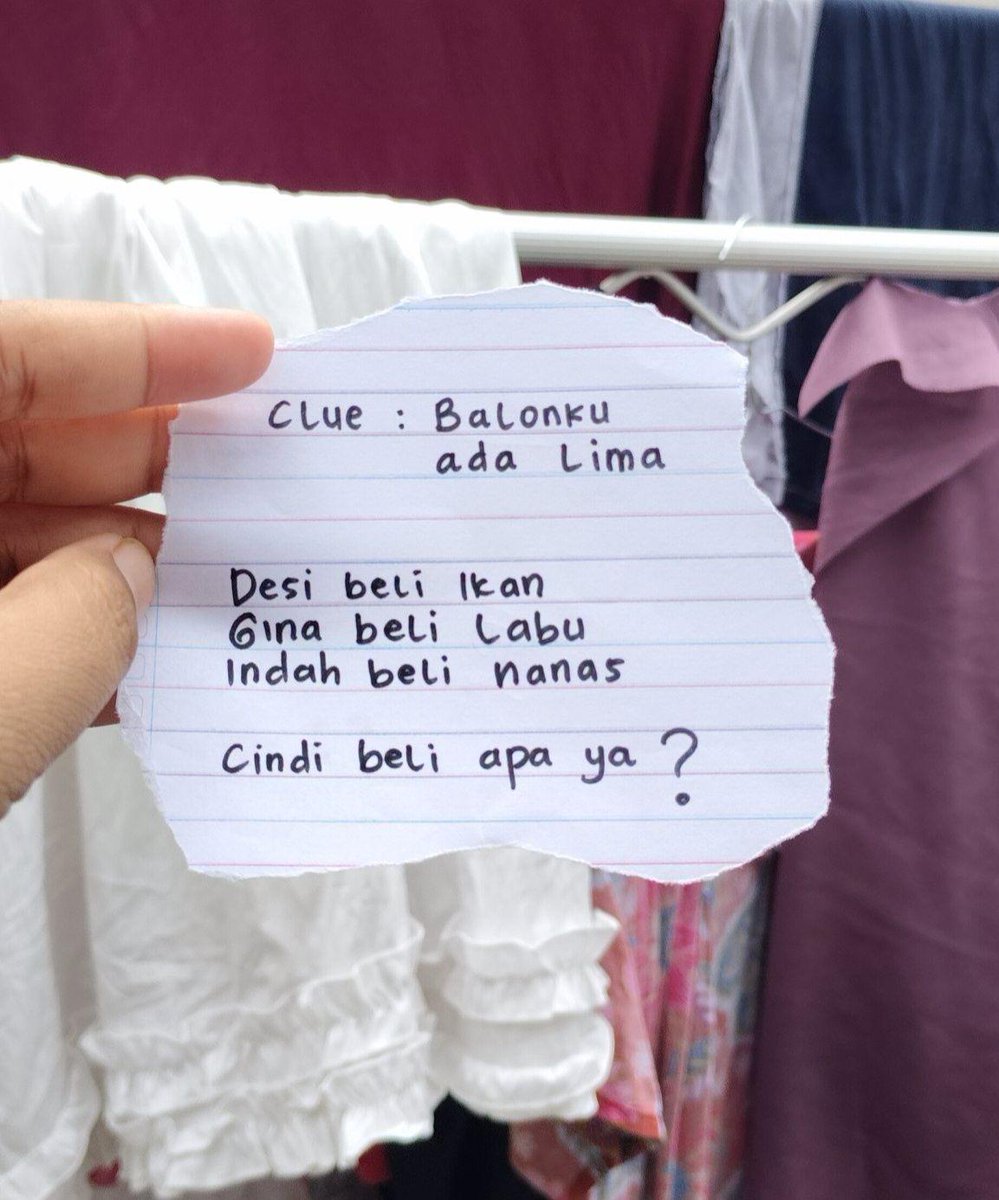 Clue : Balonku
ada Lima
Desi beli Ikan
Gina beli Labu
Indah beli nanas
Cindi beli apa ya ?